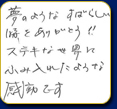 夢のような すばらしい
時をありがとう!!
ステキな世界に
ふみ入れたような
感動です